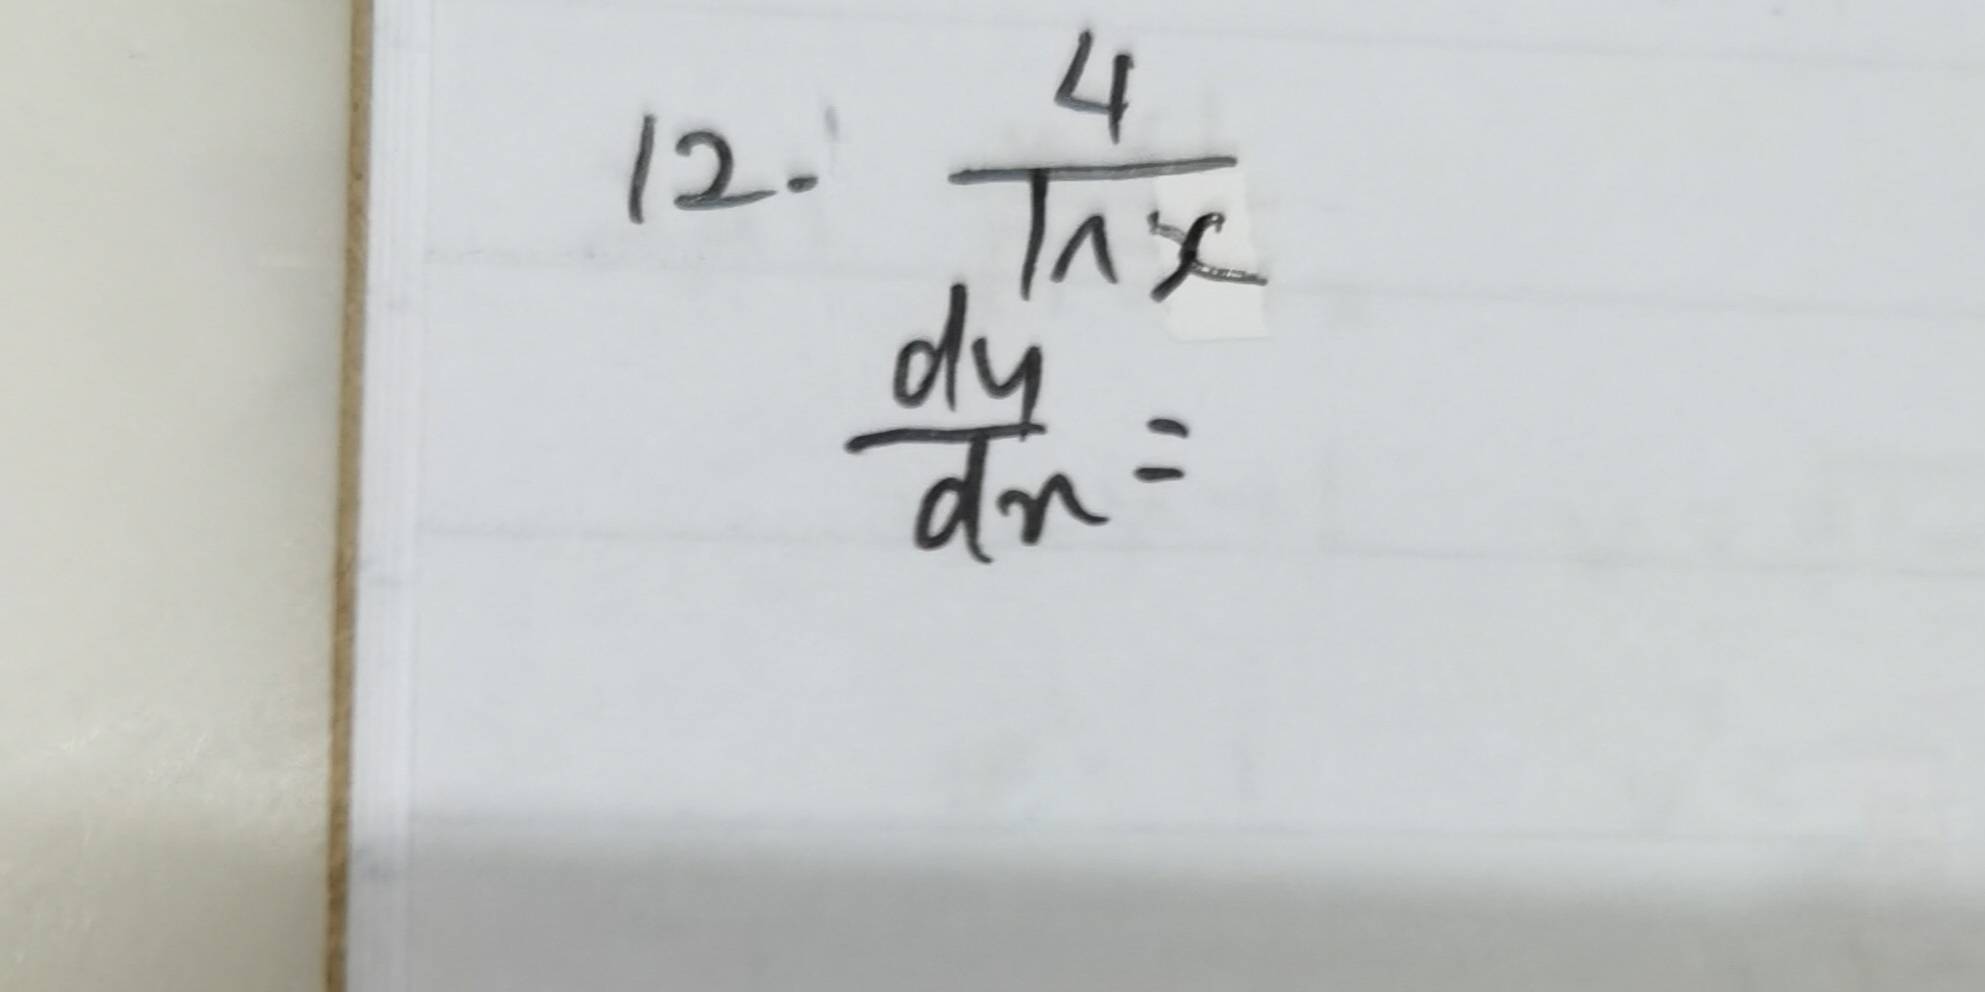 12. 4/ln x
dy/dx =